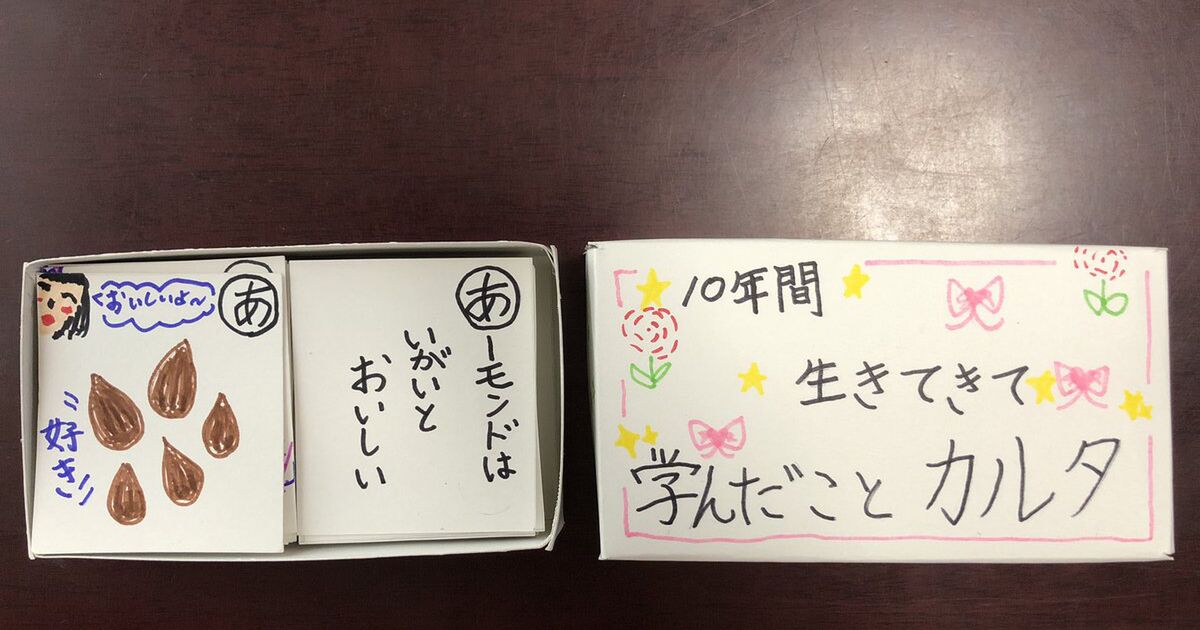 おいしいよ〜
あ
好き
あ
ーモンドは
いがいと
おいしい
10年間
生きてきて
学んだこと カルタ